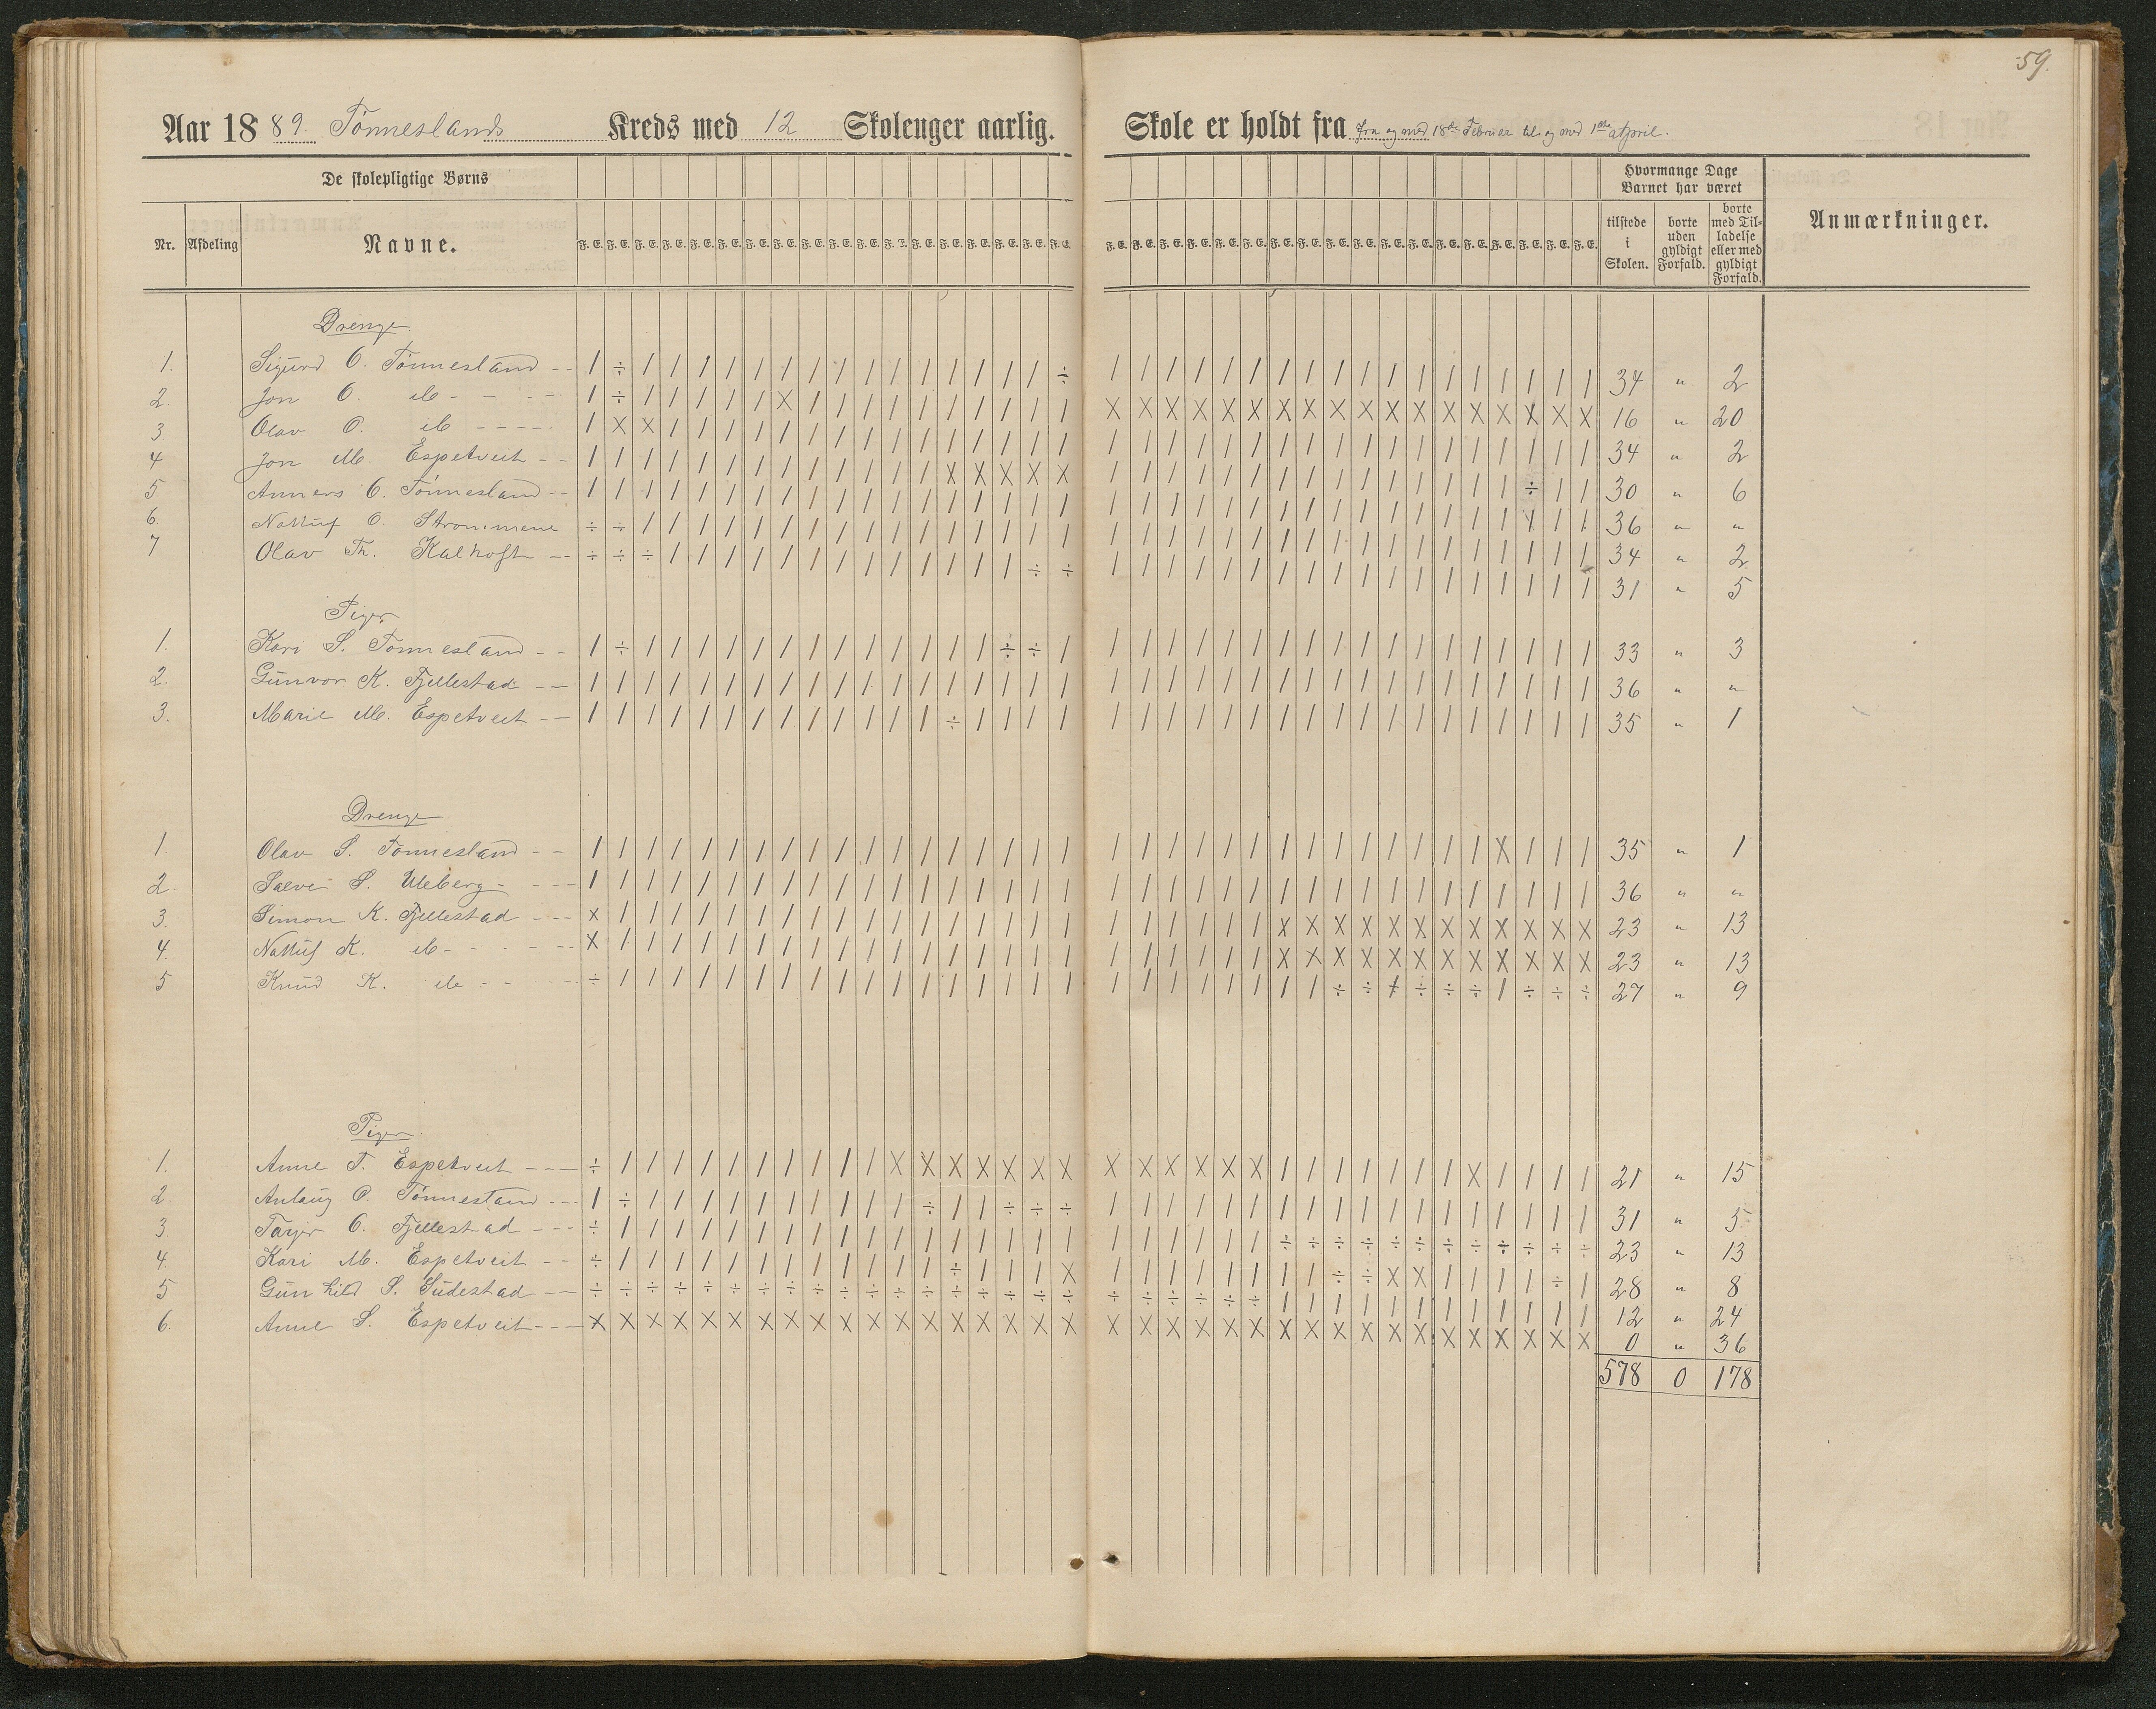 59.
Aar 1889. Tønneslands Kreds med 12 Skoleuger aarlig. Skole er holdt fra fra og med 18de Februar til og med 1ste April.
De skolepligtige Børns
Hvormange Dage Barnet har været
Nr. Afdeling Navne. F. E. F. E. F. E. F. E. F. E. F. E. F. E. F. E. F. E. F. E. F. E. F. E. F. E. F. E. F. E. F. E. F. E. F. E. F. E. F. E. F. E. F. E. F. E. F. E. F. E. F. E. F. E. F. E. F. E. F. E. F. E. F. E. F. E. F. E. F. E. F. E. tilstede i Skolen. borte uden gyldigt Forfald. borte med Tilladelse eller med gyldigt Forfald. Anmærkninger.
Drenge
1. Sigurd O. Tønnesland -- / ÷ / / / / / / / / / / / / / / / ÷ / / / / / / / / / / / / / / / / / / 34 " 2
2. Jon O. do - - -- / ÷ / / / / / X / / / / / / / / / / X X X X X X X X X X X X X X X X X X 16 " 20
3. Olav O. do ---- / X X / / / / / / / / / / / / / / / / / / / / / / / / / / / / / / / / / 34 " 2
4 Jon M. Espetveit -- / / / / / / / / / / / / / X X X X X / / / / / / / / / / / / / / / ÷ / / 30 " 6
5 Anners O. Tønnesland -- / / / / / / / / / / / / / / / / / / / / / / / / / / / / / / / / / / / / 36 " "
6. Nottuf O. Strømmene ÷ ÷ / / / / / / / / / / / / / / / / / / / / / / / / / / / / / / / / / / 34 " 2
7 Olav Th. Kalhoft -- ÷ ÷ ÷ / / / / / / / / / / / / / ÷ ÷ / / / / / / / / / / / / / / / / / / 31 " 5
Piger
1. Kari S. Tønnesland -- / ÷ / / / / / / / / / / / / / ÷ ÷ / / / / / / / / / / / / / / / / / / / 33 " 3
2. Gunvor K. Fjellestad -- / / / / / / / / / / / / / / / / / / / / / / / / / / / / / / / / / / / / 36 " "
3. Marie M. Espetveit -- / / / / / / / / / / / / / ÷ / / / / / / / / / / / / / / / / / / / / / / 35 " 1
Drenge
1. Olav S. Tønnesland -- / / / / / / / / / / / / / / / / / / / / / / / / / / / / / / / / X / / / 35 " 1
2. Salve S. Uleberg - --- / / / / / / / / / / / / / / / / / / / / / / / / / / / / / / / / / / / / 36 " "
3. Simon K. Fjellestad --- X / / / / / / / / / / / / / / / / / / / / / / / X X X X X X X X X X X X 23 " 13
4. Nottuf K. do - - - -- X / / / / / / / / / / / / / / / / / / / / / / / X X X X X X X X X X X X 23 " 13
5 Knud K. do - - -- ÷ / / / / / / / / / / / / / / / / / / / / / / / / / ÷ ÷ / ÷ ÷ ÷ / ÷ ÷ ÷ 27 " 9
Piger
1. Anne T. Espetveit --- ÷ / / / / / / / / / / X X X X X X X X X X X X X / / / / / / / X / / / / 21 " 15
2. Anlaug O. Tønnesland --- / ÷ / / / / / / / / / / ÷ / / ÷ ÷ ÷ / / / / / / / / / / / / / / / / / / 31 " 5
3. Tarjer O. Fjellestad --- ÷ / / / / / / / / / / / / / / / / / / / / / / / ÷ ÷ ÷ ÷ ÷ ÷ ÷ ÷ ÷ ÷ ÷ ÷ 23 " 13
4. Kari M. Espetveit -- ÷ / / / / / / / / / / / / ÷ / / / X / / / / / / / / ÷ ÷ X X / / / / ÷ / 28 " 8
5 Gunhild S. Sudestad -- ÷ ÷ ÷ ÷ ÷ ÷ ÷ ÷ ÷ ÷ ÷ ÷ ÷ ÷ ÷ ÷ ÷ ÷ ÷ ÷ ÷ ÷ ÷ ÷ / / / / / / / / / / / / 12 " 24
6. Anne S. Espetveit --- X X X X X X X X X X X X X X X X X X X X X X X X X X X X X X X X X X X X 0 " 36
578 0 178